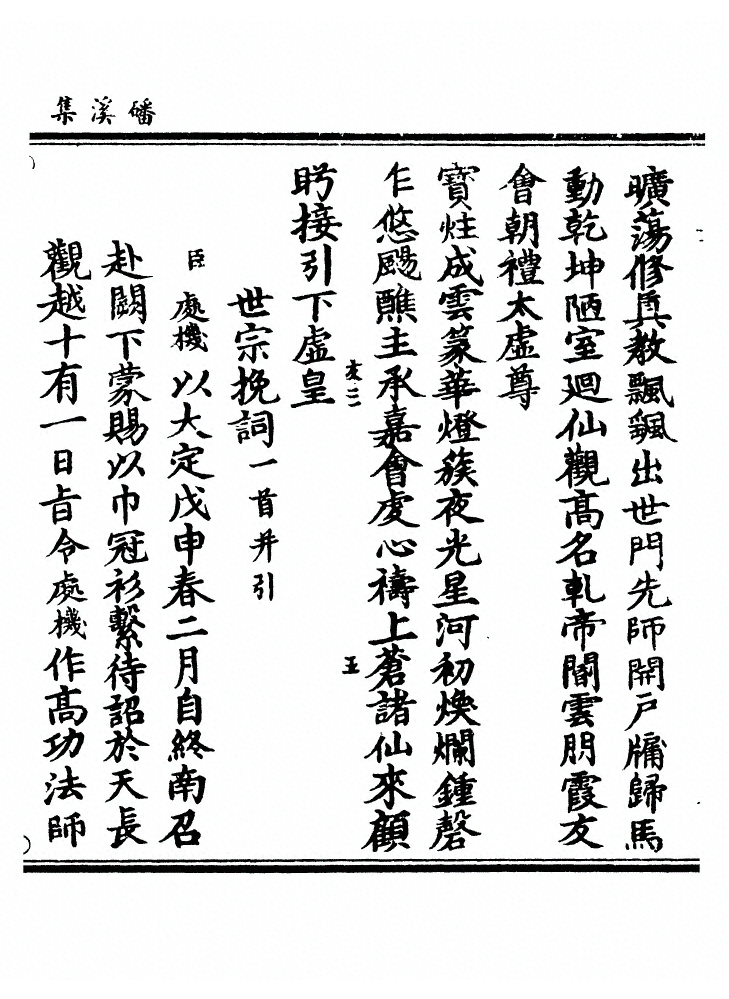 磻溪集
曠蕩修眞教飄颻出世門先師開戶牖歸馬
動乾坤陋室迴仙觀高名軋帝閽雲朋霞友
會朝禮太虛尊
寶炷成雲篆華燈簇夜光星河初煥爛鍾磬
乍悠颺醮主承嘉會虔心禱上蒼諸仙來顧
盻接引下虛皇
世宗挽詞一首并引
臣處機以大定戊申春二月自終南召
赴闕下蒙賜以巾冠衫繫待詔於天長
觀越十有一日旨令處機作高功法師